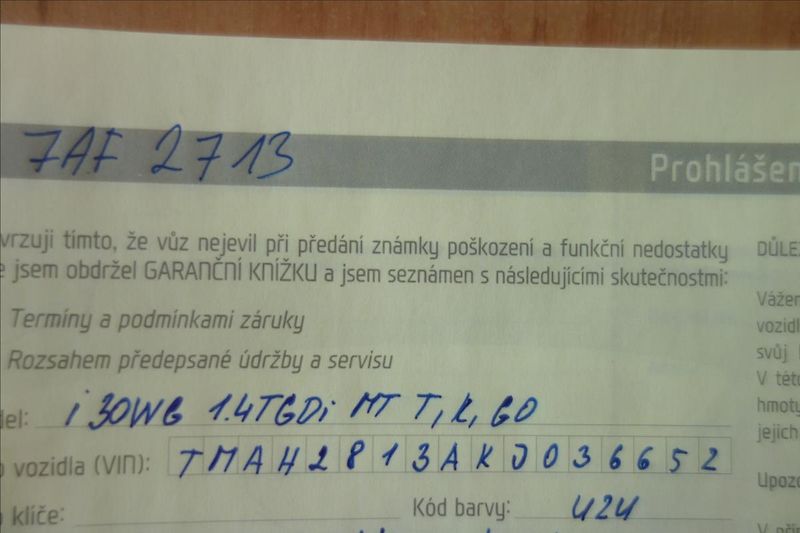 7AF 2713
Prohlášen
vrzuji tímto, že vůz nejevil při předání známky poškození a funkční nedostatky
e jsem obdržel GARANČNÍ KNÍŽKU a jsem seznámen s následujícími skutečnostmi:
Termíny a podmínkami záruky
Rozsahem předepsané údržby a servisu
del: i30WG 1.4TGDi MT T, K, GO
o vozidla (VIN): TMAH2813AKJ036652
o klíče: Kód barvy: U2U
DŮLE
Vážen
vozidl
svůj
V tét
hmoty
jejich
Upozo
V pří